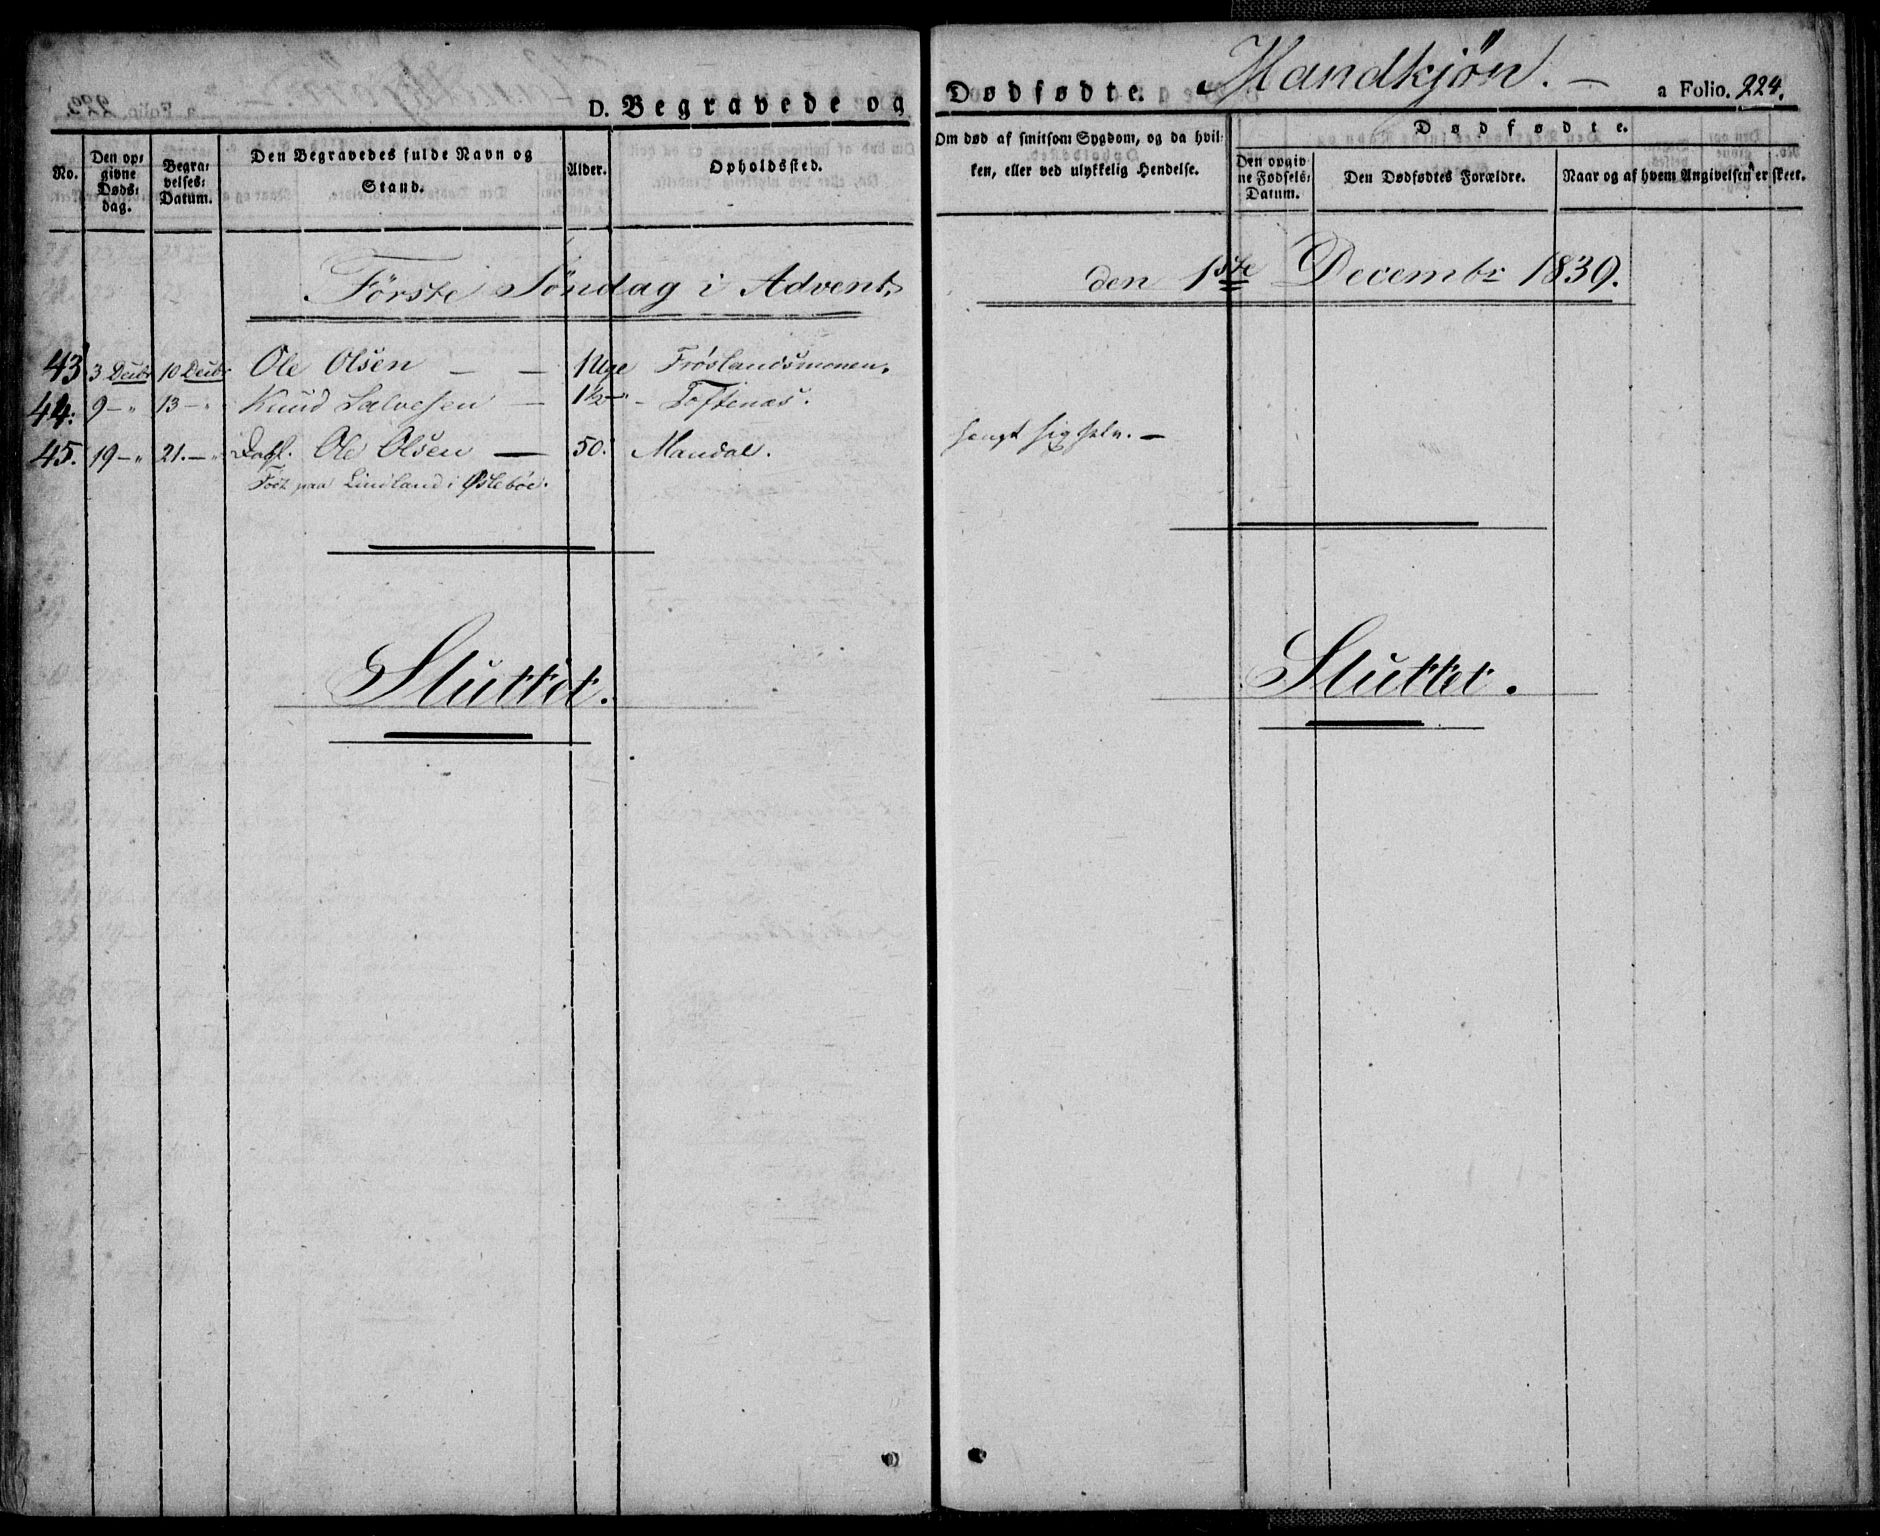 D. Begravede og Dødfødte. Mandkjøn. — a Folio. 224.
No.
Den opgivne Døds: dag.
Begravelses: Datum.
Den Begravedes fulde Navn og Stand.
Alder.
Opholdssted.
Om død af smitsom Sygdom, og da hvilken, eller ved ulykkelig Hendelse.
Dødfødte.
Den opgivne Fødsels: Datum.
Den Dødfødtes Forældre.
Naar og af hvem Angivelsen er skeet.
Første Søndag i Advent, den 1ste Decembr 1839.
43 3 Decbr 10 Decbr Ole Olsen — — 1 Uge Frøslandsmonen.
44. 9 — " 13 — " Knud Salvesen — 1½ — " — Toftenæs.
45. 19 — " 21. — " Ole Olsen — 50. Mandal. hengt sig selv. —
Født paa Lindland i Øslebøe.
Sluttet. Sluttet.